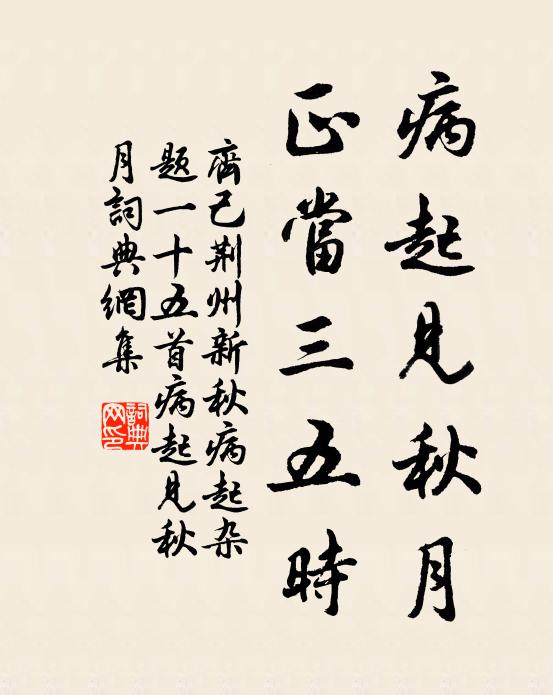 病起見秋月
正當三五時
齊己荆州新秋病起杂
题一十五首病起見秋
月詞典網集
詞典
网印